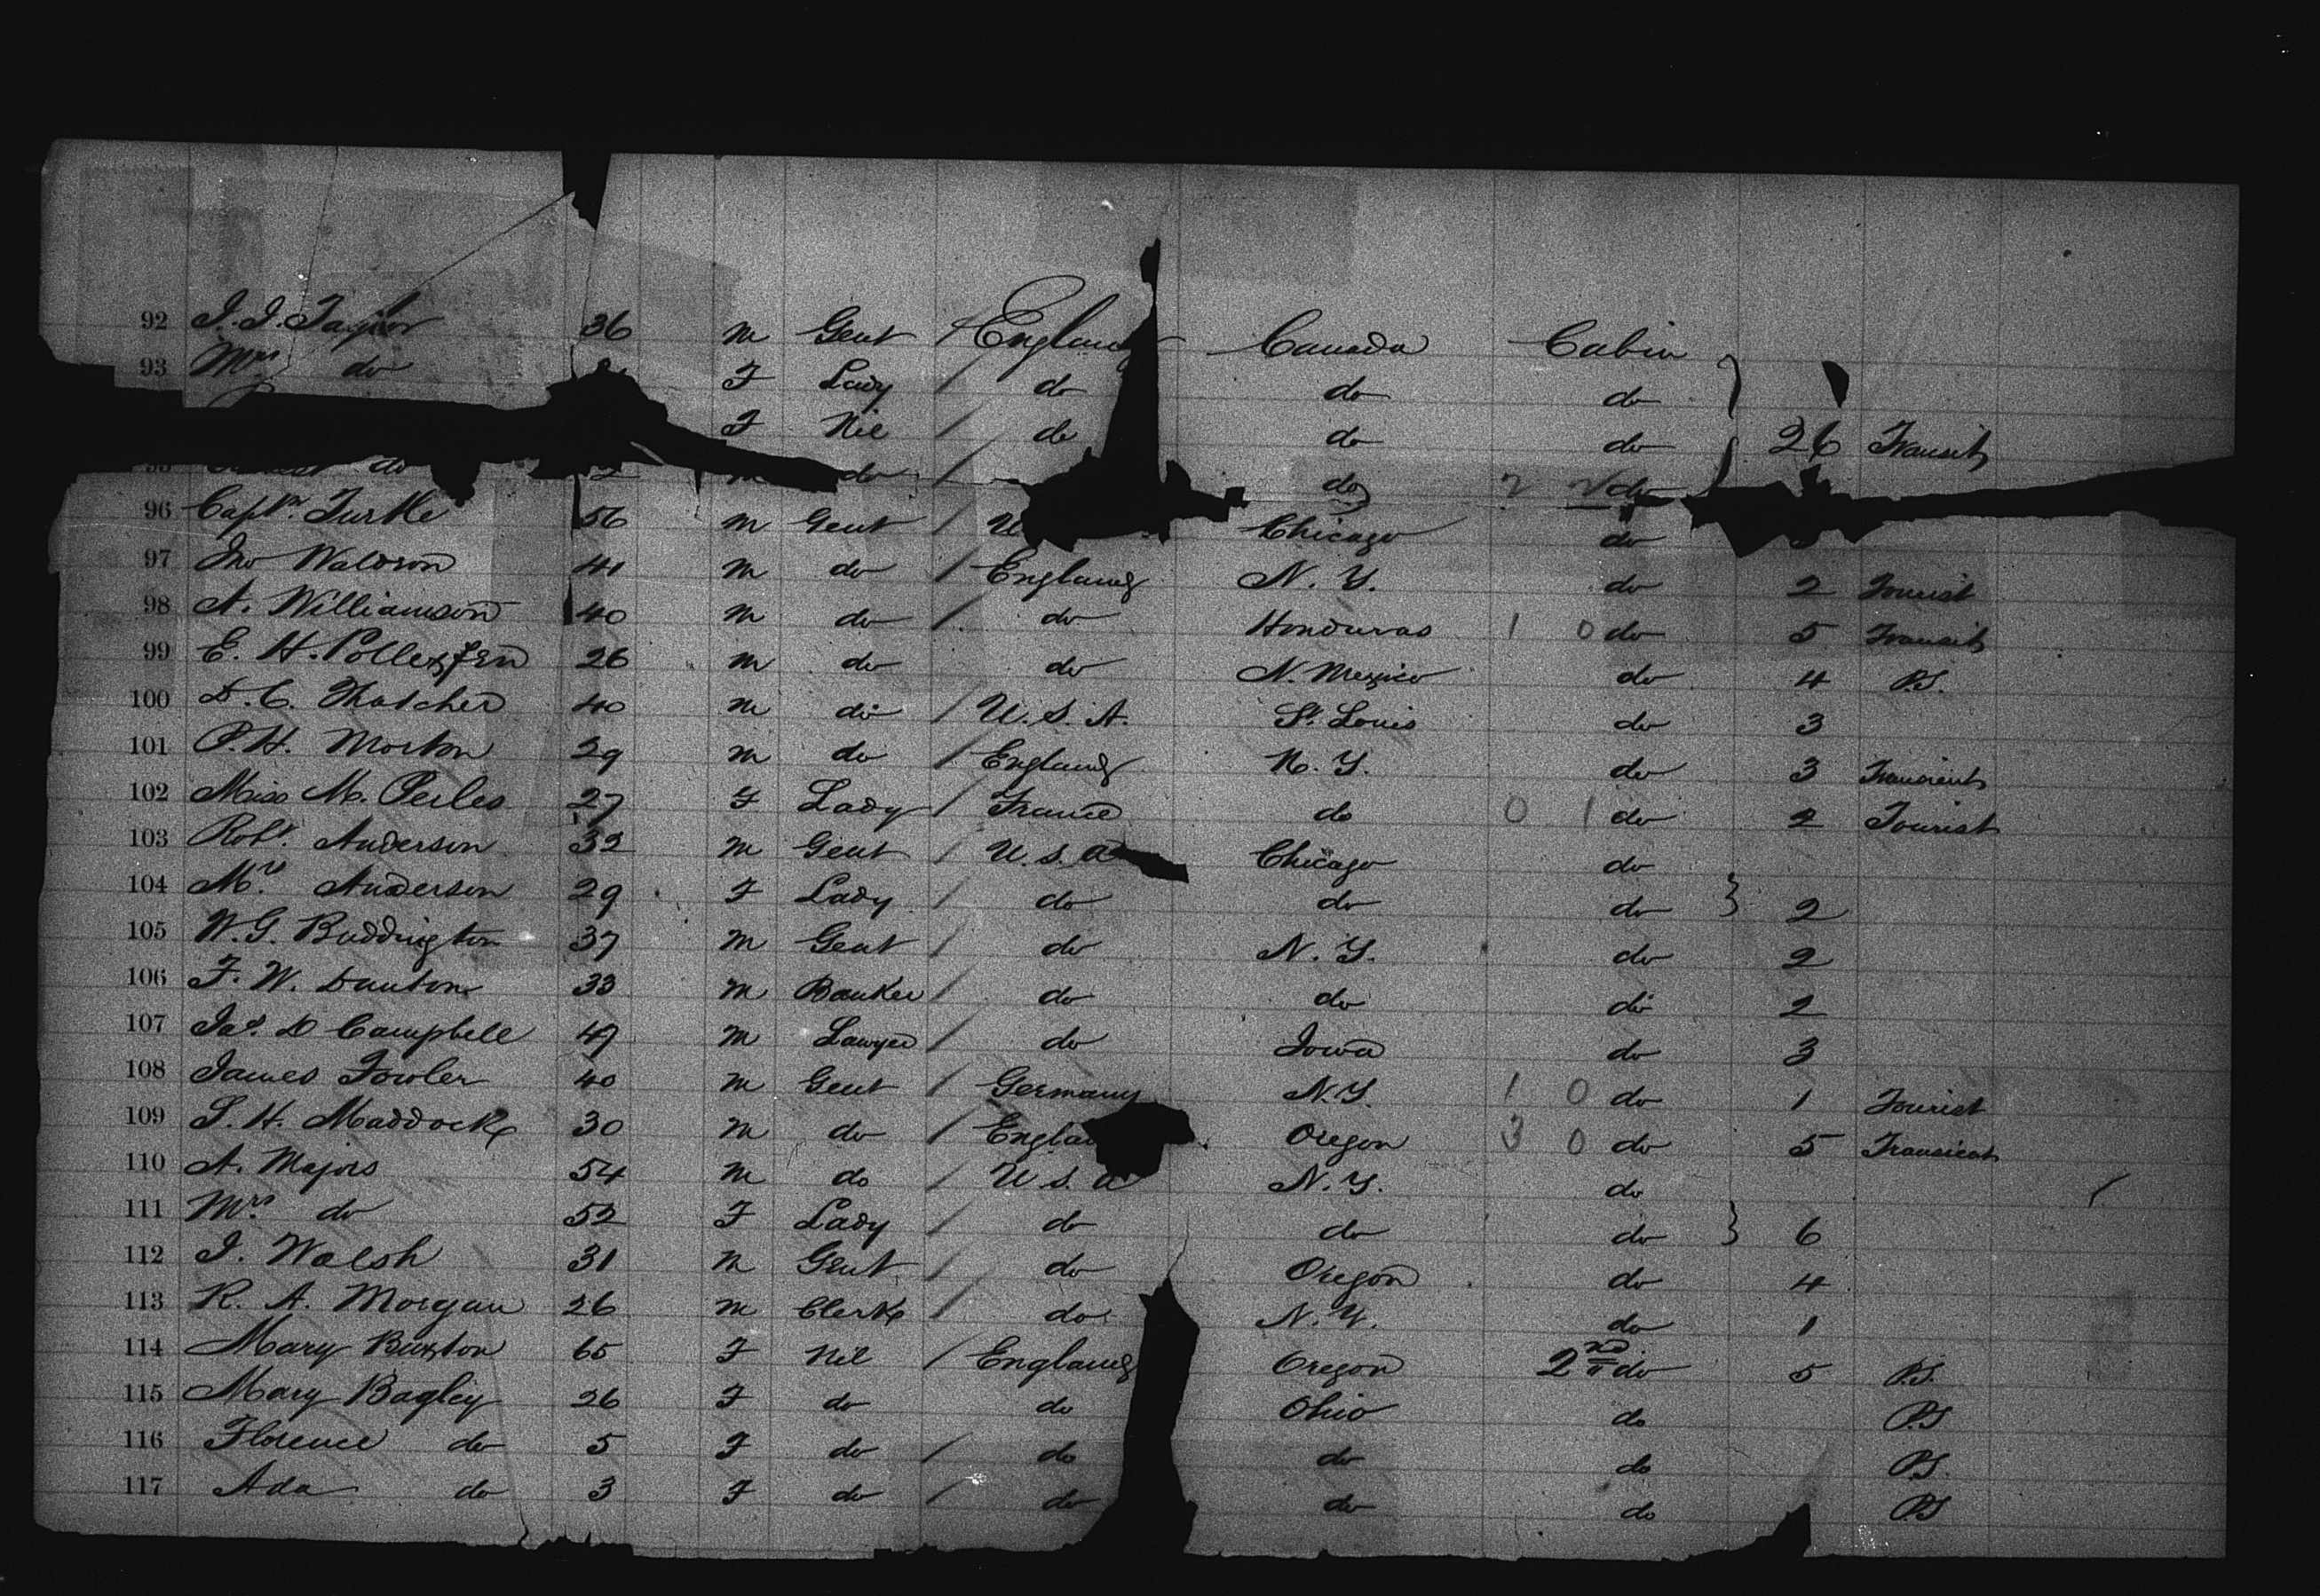 92 J. J. Taylor 36 m Gent / England Canada Cabin
93 Mrs do F Lady / do do do
F Nil / do do do 26 Transit
95 do m do / do 2 2 do
96 Captn. Turtle 56 m Gent / U Chicago do
97 Jno Waldron 41 m do / England N. Y. do 2 Tourist
98 A. Williamson 40 m do / do Honduras 1 0 do 5 Transit
99 E. H. Pollexfen 26 m do do N. Mexico do 4 P.S.
100 D. C. Thatcher 40 m do / U. S. A. St. Louis do 3
101 P. H. Morton 29 m do / England N. Y. do 3 Transient
102 Miss M. Perles 27 F Lady / France do 0 1 do 2 Tourist
103 Robt. Anderson 32 m Gent / U. S. A Chicago do
104 Mrs Anderson 29 F Lady / do do do } 2
105 W. G. Buddington 37 m Gent / do N. Y. do 2
106 F. W. Danton 33 m Banker / do do do 2
107 Jas. D Campbell 49 m Lawyer / do Iowa do 3
108 James Fowler 40 m Gent / Germany N. Y. 1 0 do 1 Tourist
109 S. H. Maddock 30 m do / Englan Oregon 3 0 do 5 Transient
110 A. Majors 54 m do / U. S. A N. Y. do
111 Mrs. do 52 F Lady / do do do } 6
112 J. Walsh 31 m Gent / do Oregon do 4
113 R. A. Morgan 26 m Clerk / do N. Y. do 1
114 Mary Buxton 65 F Nil / England Oregon 2nd do 5 P.S.
115 Mary Bagley 26 F do do Ohio do P.S
116 Florence do 5 F do / do do do P.S.
117 Ada do 3 F do / do do do P.S